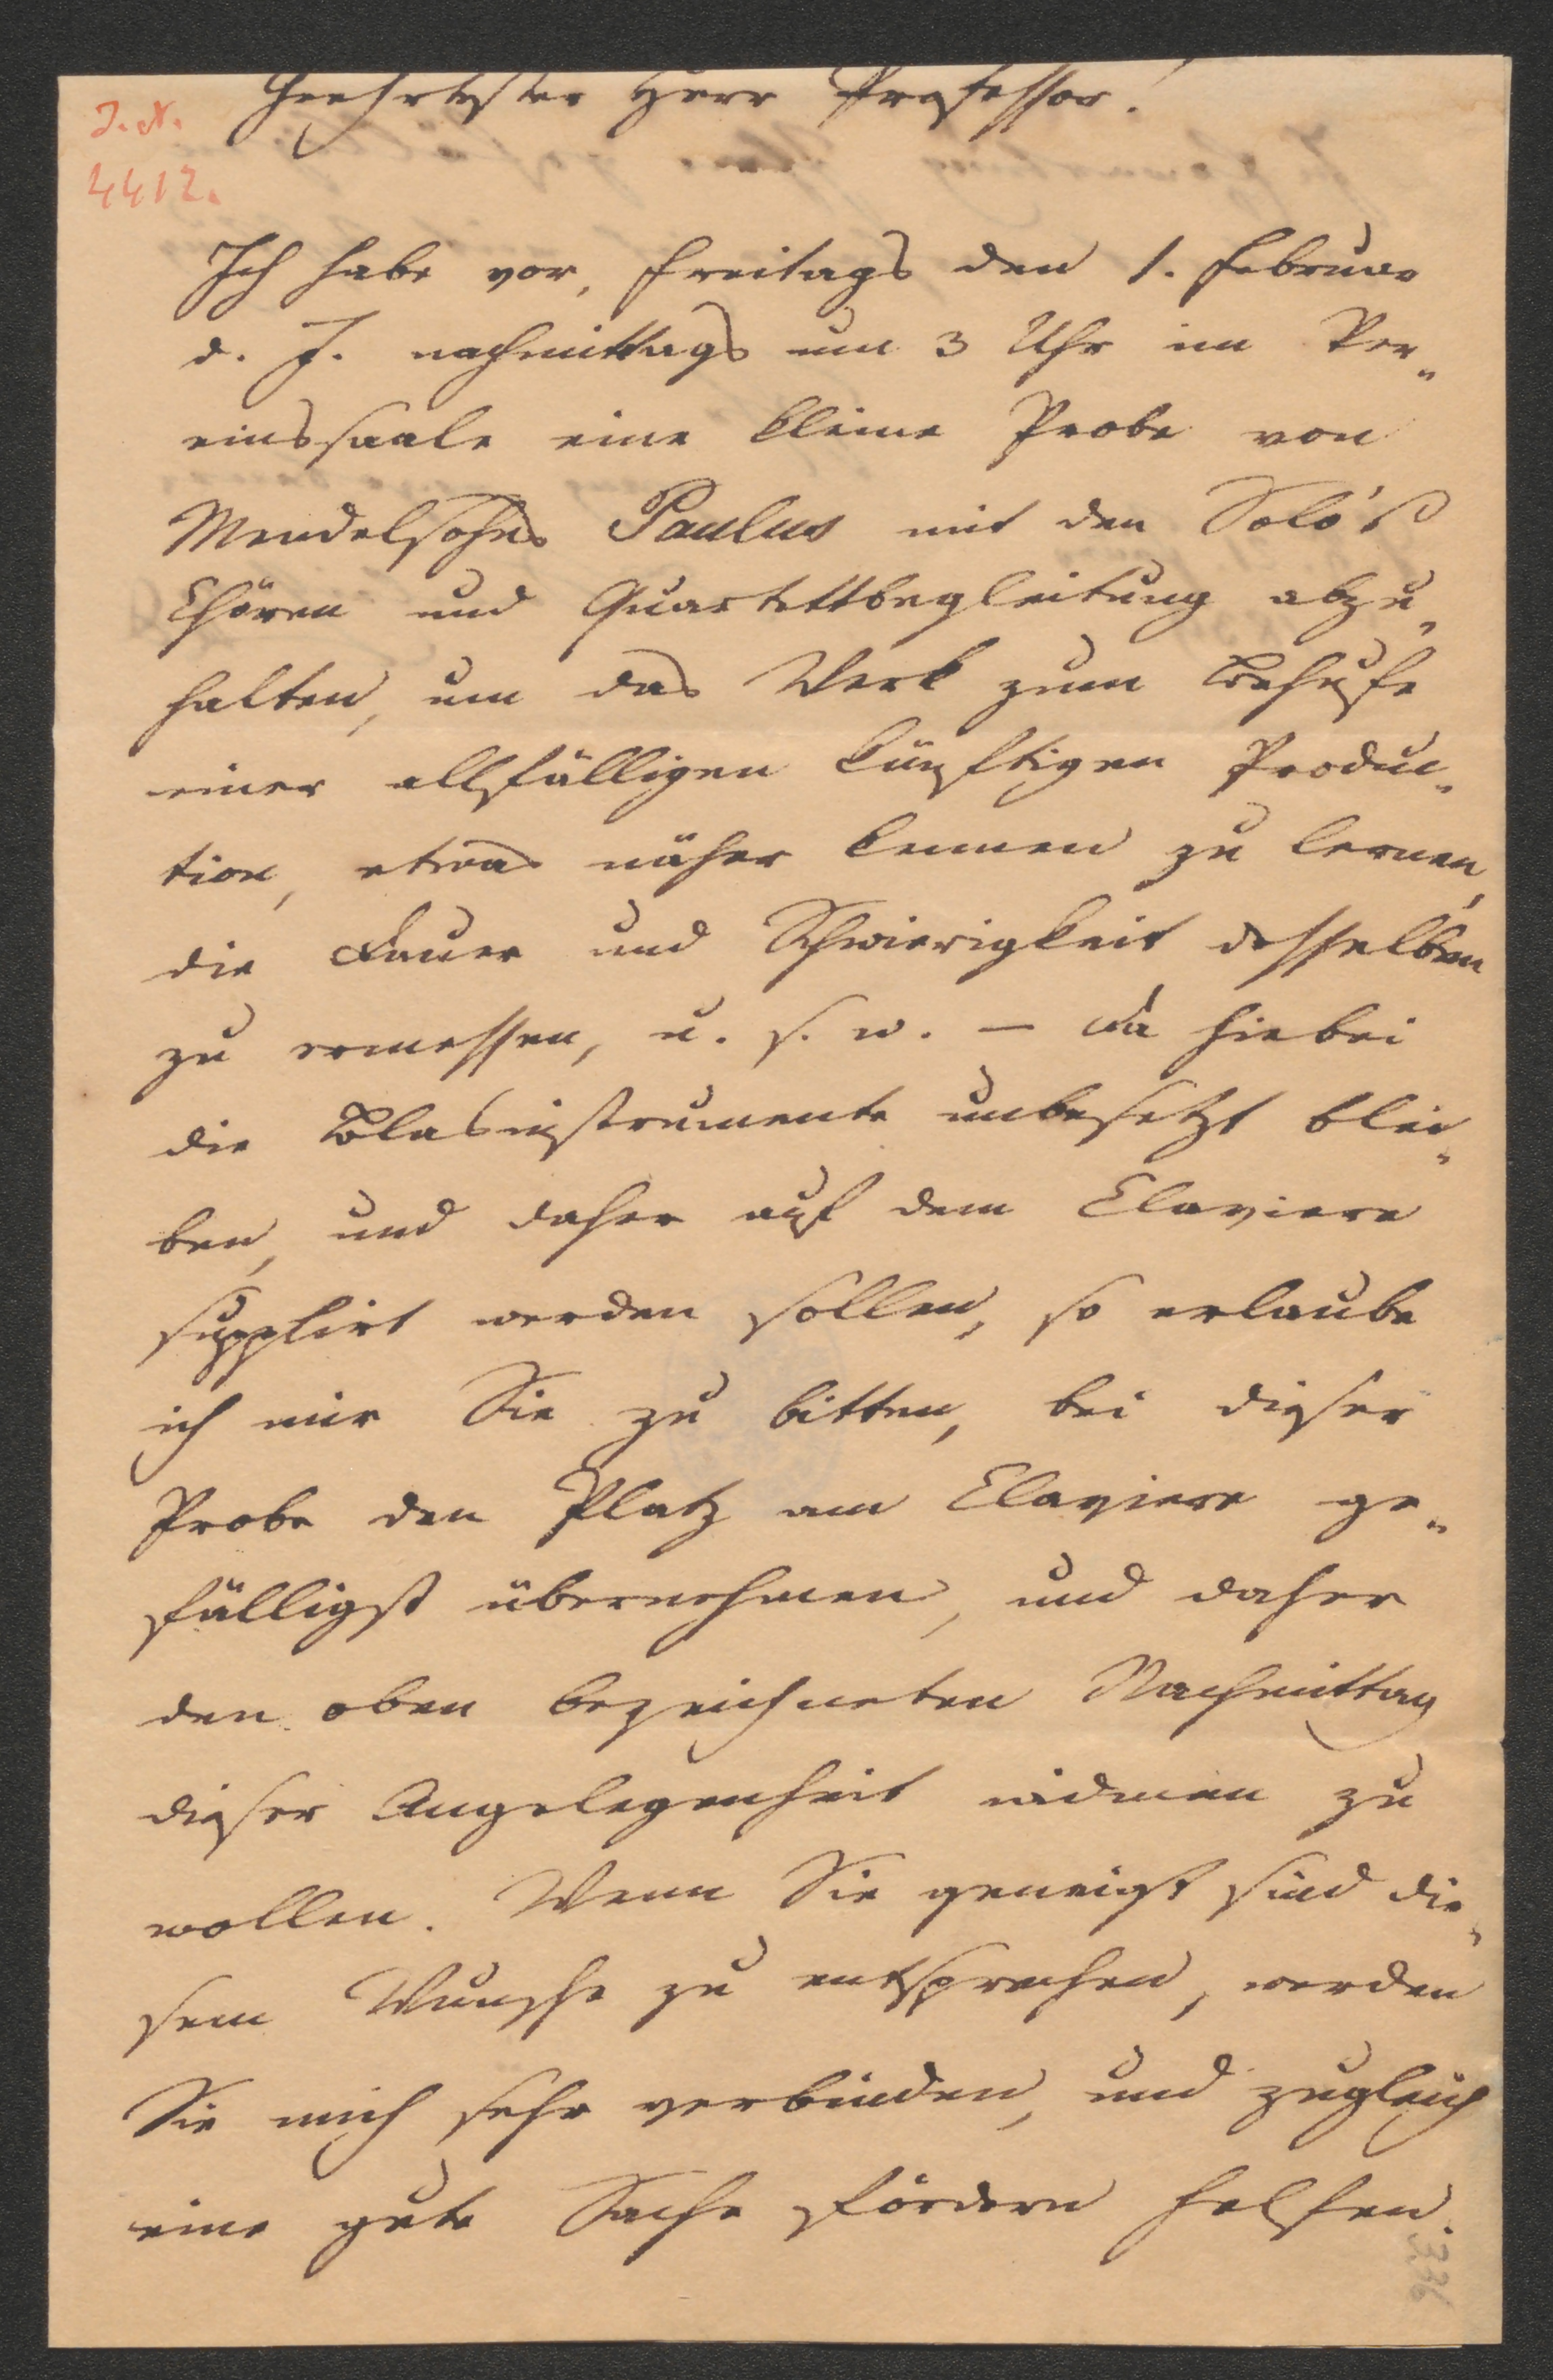 J. N.
4412.
Geehrtester Herr Professor!
Ich habe vor, Freitags den 1. Februar
d. J. nachmittags um 3 Uhr im Ver„
einssaale eine kleine Probe von
Mendelsohns Paulus mit den Solo's
Chören und Quartettbegleitung abzu„
halten, um das Werk zum Behufe
einer allfälligen künftigen Produc„
tion, etwas näher kennen zu lernen,
die Dauer und Schwierigkeit desselben
zu ermessen, u. s. w. – Da hiebei
die Blasinstrumente unbesetzt blei„
ben, und daher auf dem Claviere
supplirt werden sollen, so erlaube
ich mir Sie zu bitten, bei dieser
Probe den Platz am Claviere ge„
fälligst übernehmen, und daher
den oben bezeichneten Nachmittag
dieser Angelegenheit widmen zu
wollen. Wenn Sie geneigt sind die„
sem Wunsche zu entsprechen, werden
Sie mich sehr verbinden, und zugleich
eine gute Sache fördern helfen.